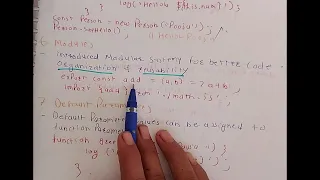 log (`Hello ${this.name}`);
}
}
Const Person = new Person ('Pooja');
Person.sayHello();
6. Modules
- Introduced Modular syntax for better code
organization & reusability
export const add = (a,b) => a+b;
import {add} from './math.js';
7 Default Parameters
- Default Parameter values can be assigned to
function Parame
function gree
log (